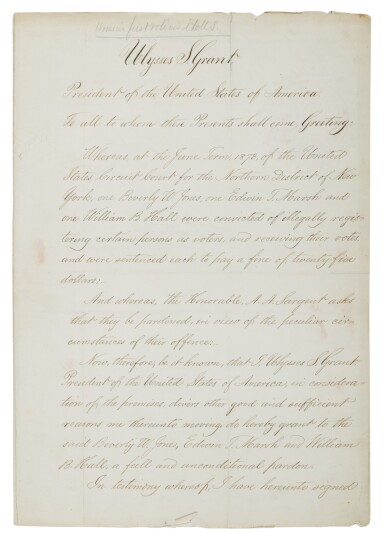 Women first vote in
Ulysses S Grant
President of the United States of America.
To all to whom these Presents shall come, Greeting:
Whereas, at the June Term, 1873, of the United
States Circuit Court for the Northern District of New
York, one Beverly W. Jones, one Edwin T. Marsh and
one William B. Hall were convicted of illegally regis-
tering certain persons as voters, and receiving their votes
and were sentenced each to pay a fine of twenty five
dollars;
And whereas, the Honorable A. A. Sargent asks
that they be pardoned, in view of the peculiar cir-
cumstances of their offence:
Now, therefore, be it known, that I, Ulysses S. Grant
President of the United States of America, in considera-
tion of the premises, divers other good and sufficient
reasons me thereunto moving do hereby grant to the
said Beverly W. Jones, Edwin T. Marsh and William
B. Hall, a full and unconditional pardon.
In testimony whereof, I have hereunto signed